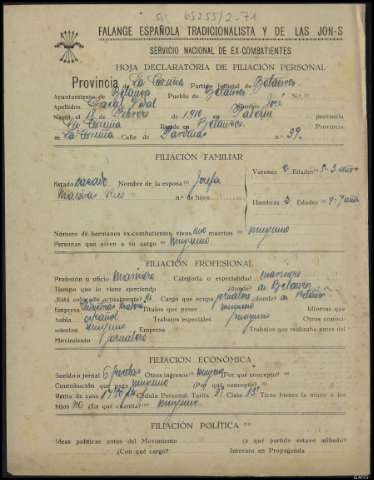 65255/2-71
FALANGE ESPAÑOLA TRADICIONALISTA Y DE LAS JON-S
SERVICIO NACIONAL DE EX-COMBATIENTES
HOJA DECLARATORIA DE FILIACIÓN PERSONAL
Provincia de La Coruña Partido Judicial de Betanzos
Ayuntamiento de Betanzos Pueblo de Betanzos
Apellidos Vidal Nombre José
Nació el 18 de Febrero de 1910 en Provincia
La Coruña Reside en Betanzos Provincia
La Coruña Calle de n.º 39.
FILIACIÓN FAMILIAR
Varones 2 Edades 5-3 años
Estado casado Nombre de la esposa Josefa
n.º de hijos Hembras 2 Edades 9-7 años
Número de hermanos ex-combatientes, vivos uno muertos ninguno
Personas que viven a su cargo ninguno
FILIACIÓN PROFESIONAL
Profesión u oficio Marinero Categoría o especialidad marinero
Tiempo que lo viene ejerciendo ¿dónde? en Betanzos
¿Está colocado actualmente? Si Cargo que ocupa jornalero ¿dónde? en Betanzos
Empresa Idiomas que
habla español Trabajos especiales ninguno Otros conoci-
mientos ninguno Empresa Trabajos que realizaba antes del
Movimiento jornalero
FILIACIÓN ECONÓMICA
Sueldo o jornal 6 pesetas Otros ingresos ninguno ¿Por qué concepto?
Contribución que paga ninguno ¿Por qué concepto?
Renta de casa Cédula Personal Tarifa 3ª Clase 13ª Tiene bienes la mujer o los
hijos no ¿En qué cuantía? ninguno
FILIACIÓN POLÍTICA
Ideas políticas antes del Movimiento ¿a qué partido estuvo afiliado?
¿Con qué cargo? Intervino en Propaganda